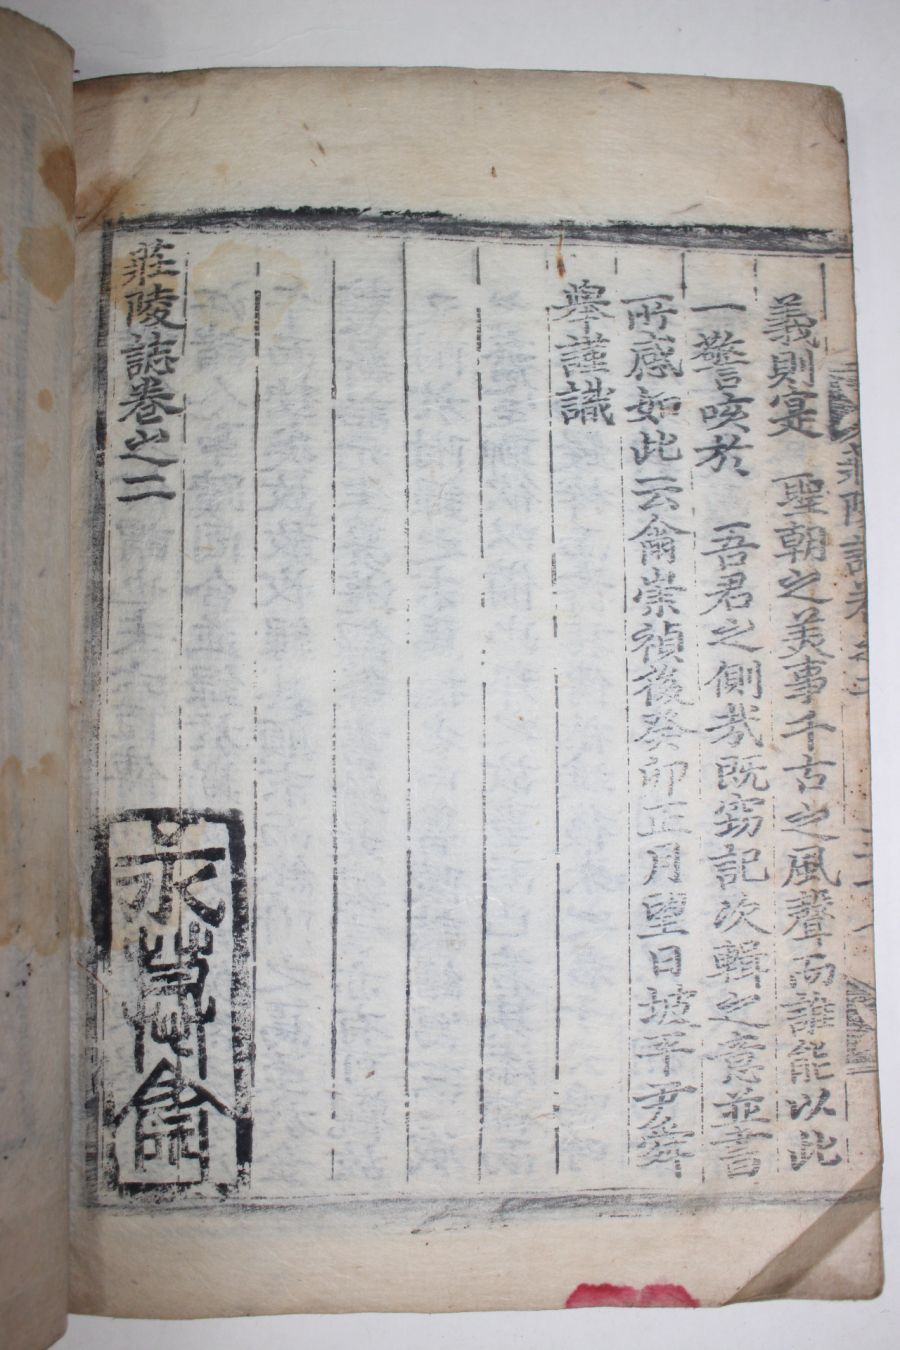 義則寔 聖朝之美事千古之風聲而誰能以此
一警咳於 吾君之側哉旣竊記次輯之意並書
所感如此云爾崇禎後癸卯正月望日坡平尹舜
擧謹識
莊陵誌卷之二